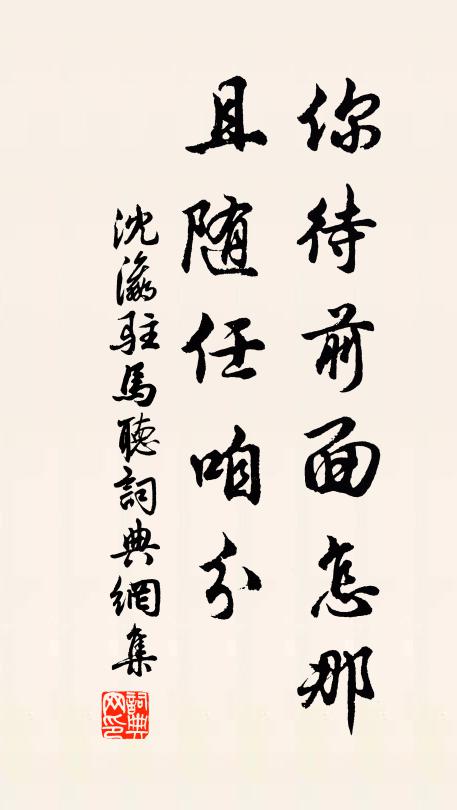 你待前面怎那
且随任咱分
沈瀛駐馬聽詞典網集
詞典网印